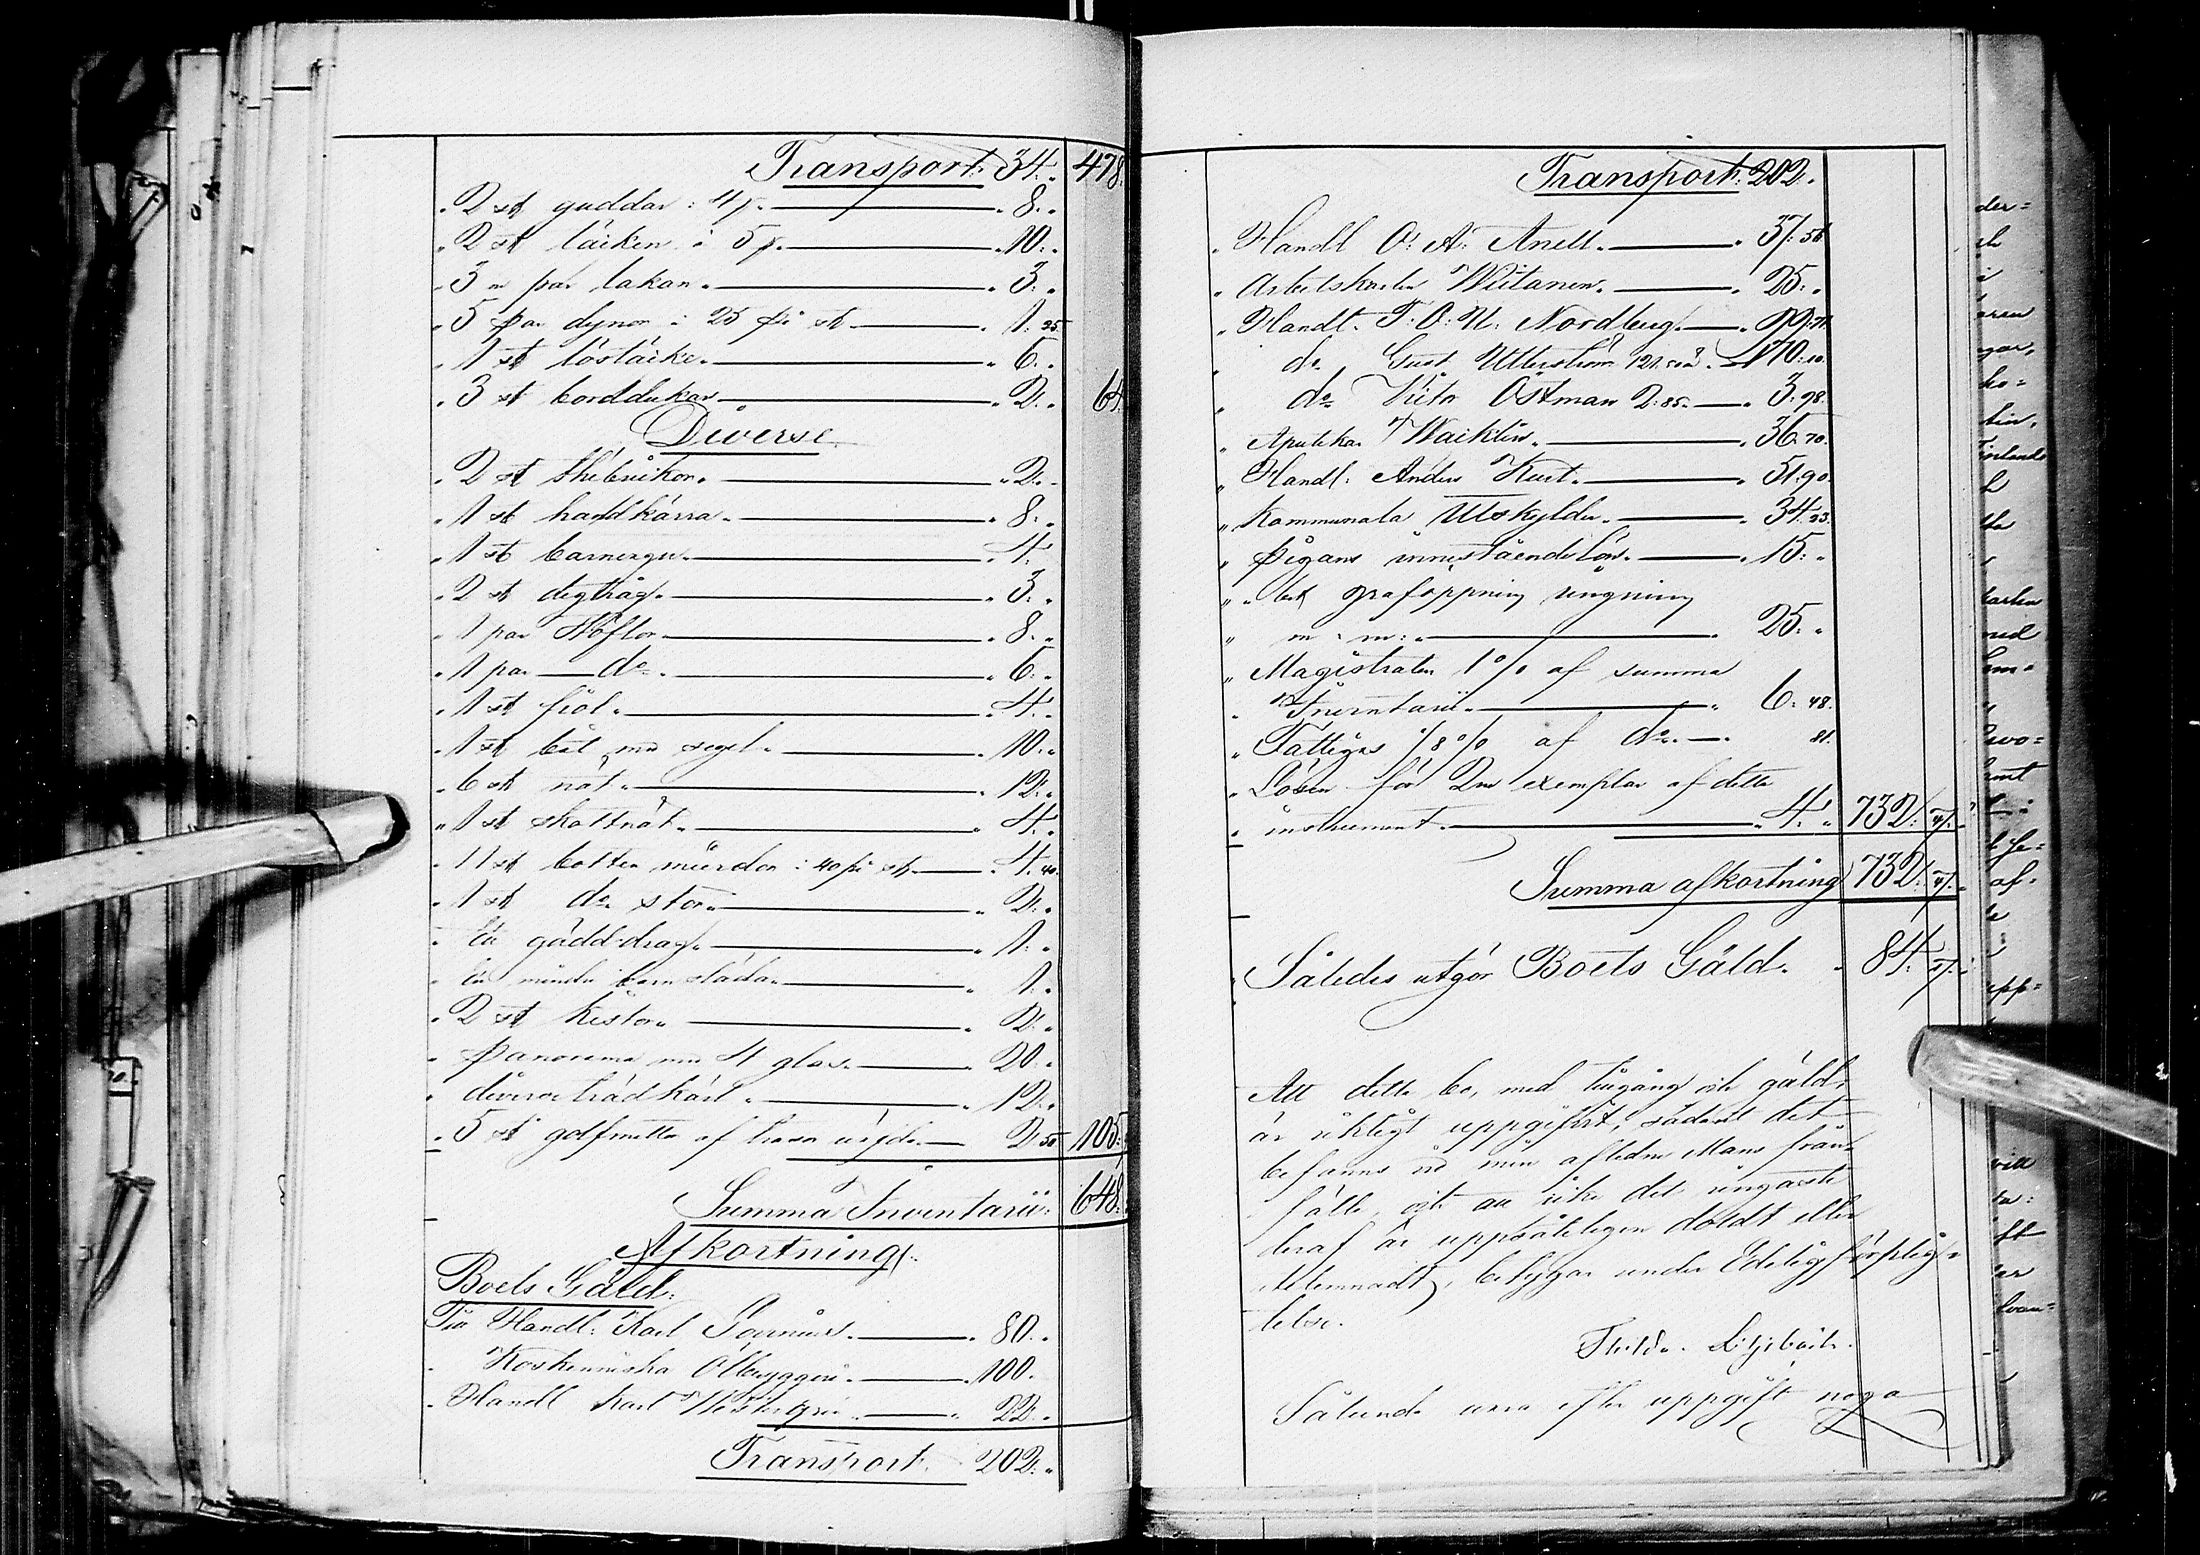 Transport. 34. „ 478.
„ 2 st guddar : 4 p. — „ 8. „
„ 2 st täcken à 5 p. — „ 10. „
„ 3 „ par lakan. — „ 3. „
„ 5 par dynor à 25 på st — „ 1: 25
„ 1 st löstäcke. — „ 6. „
„ 3 st borddukar — „ 2. „ 64.
Diverse.
„ 2 st — „ 2. „
„ 1 st handkärra. — „ 8. „
„ 1 st barnvagn. — „ 4.
„ 2 st degtråg. — „ 3. „
„ 1 par Stöflor. — „ 8. „
„ 1 par — do. — „ 6. „
„ 1 st fiol. — „ 4. „
„ 1 st båt med segel. — „ 10. „
„ 6 st nät. — „ 12. „
„ 1 st skottnät. — „ 4. „
„ 11 st botten mierdor : 40 på st. — „ 4. 40.
„ 1 st do stor. — „ 2. „
„ En gädd-drag. — „ 1. „
„ En mindre barn släda. — „ 1. „
„ 2 st kistor. — „ 2. „
„ Panorama med 4 glas. — „ 20. „
„ diverse trädkärl. — „ 12. „
„ 5 st golfmattor af trasor — 2. 50 105.
Summa Inventarii: 648.
Afkortning:
Boets Gäld.
Till Handl: Karl — „ 80. „
„ Koskenniska Ölbryggeri. — „ 100.
„ Handl Karl — „ 22. „
Transport. 202. „
Transport: 202.
„ Handl O: A: Anell. — „ 37: 50
„ Arbetskarlen Wiitanen. — „ 25. „
„ Handl. F: O: U: Nordberg. — „ 99: 71.
„ do Gust. Utterström — 170: 10.
„ do Viktor Östman 2: 85. — „ 3. 98.
„ Apotekar — „ 36. 70.
„ Handl: Anders Kurt. — „ 51. 90
„ Kommunala Utskylder. — „ 34. 23.
„ Pigans innestående lön. — „ 15: „
„ „ bet graföppning ringning
„ m : m: „ — „ 25: „
„ Magistraten 1 % af summa
„ Inventarii. — „ 6: 48.
„ Fattigas 1/8 % af do. — 81.
„ Lösen för 2ne exemplar af detta
„ instrument. — „ 4. „ 732: 41.
Summa afkortning 732: 41.
Således utgör Boets Gäld. „ 84.
Att detta bo, med tillgång och gäld,
är riktigt uppgifvit, sådant det
befanns vid min aflidne Mans från-
fälle, och att icke det ringaste
deraf är uppsåteligen doldt eller
utelemnadt, betygar under Edeligförplig-
telse.
Hilda.
Sålunda vara efter uppgift noga